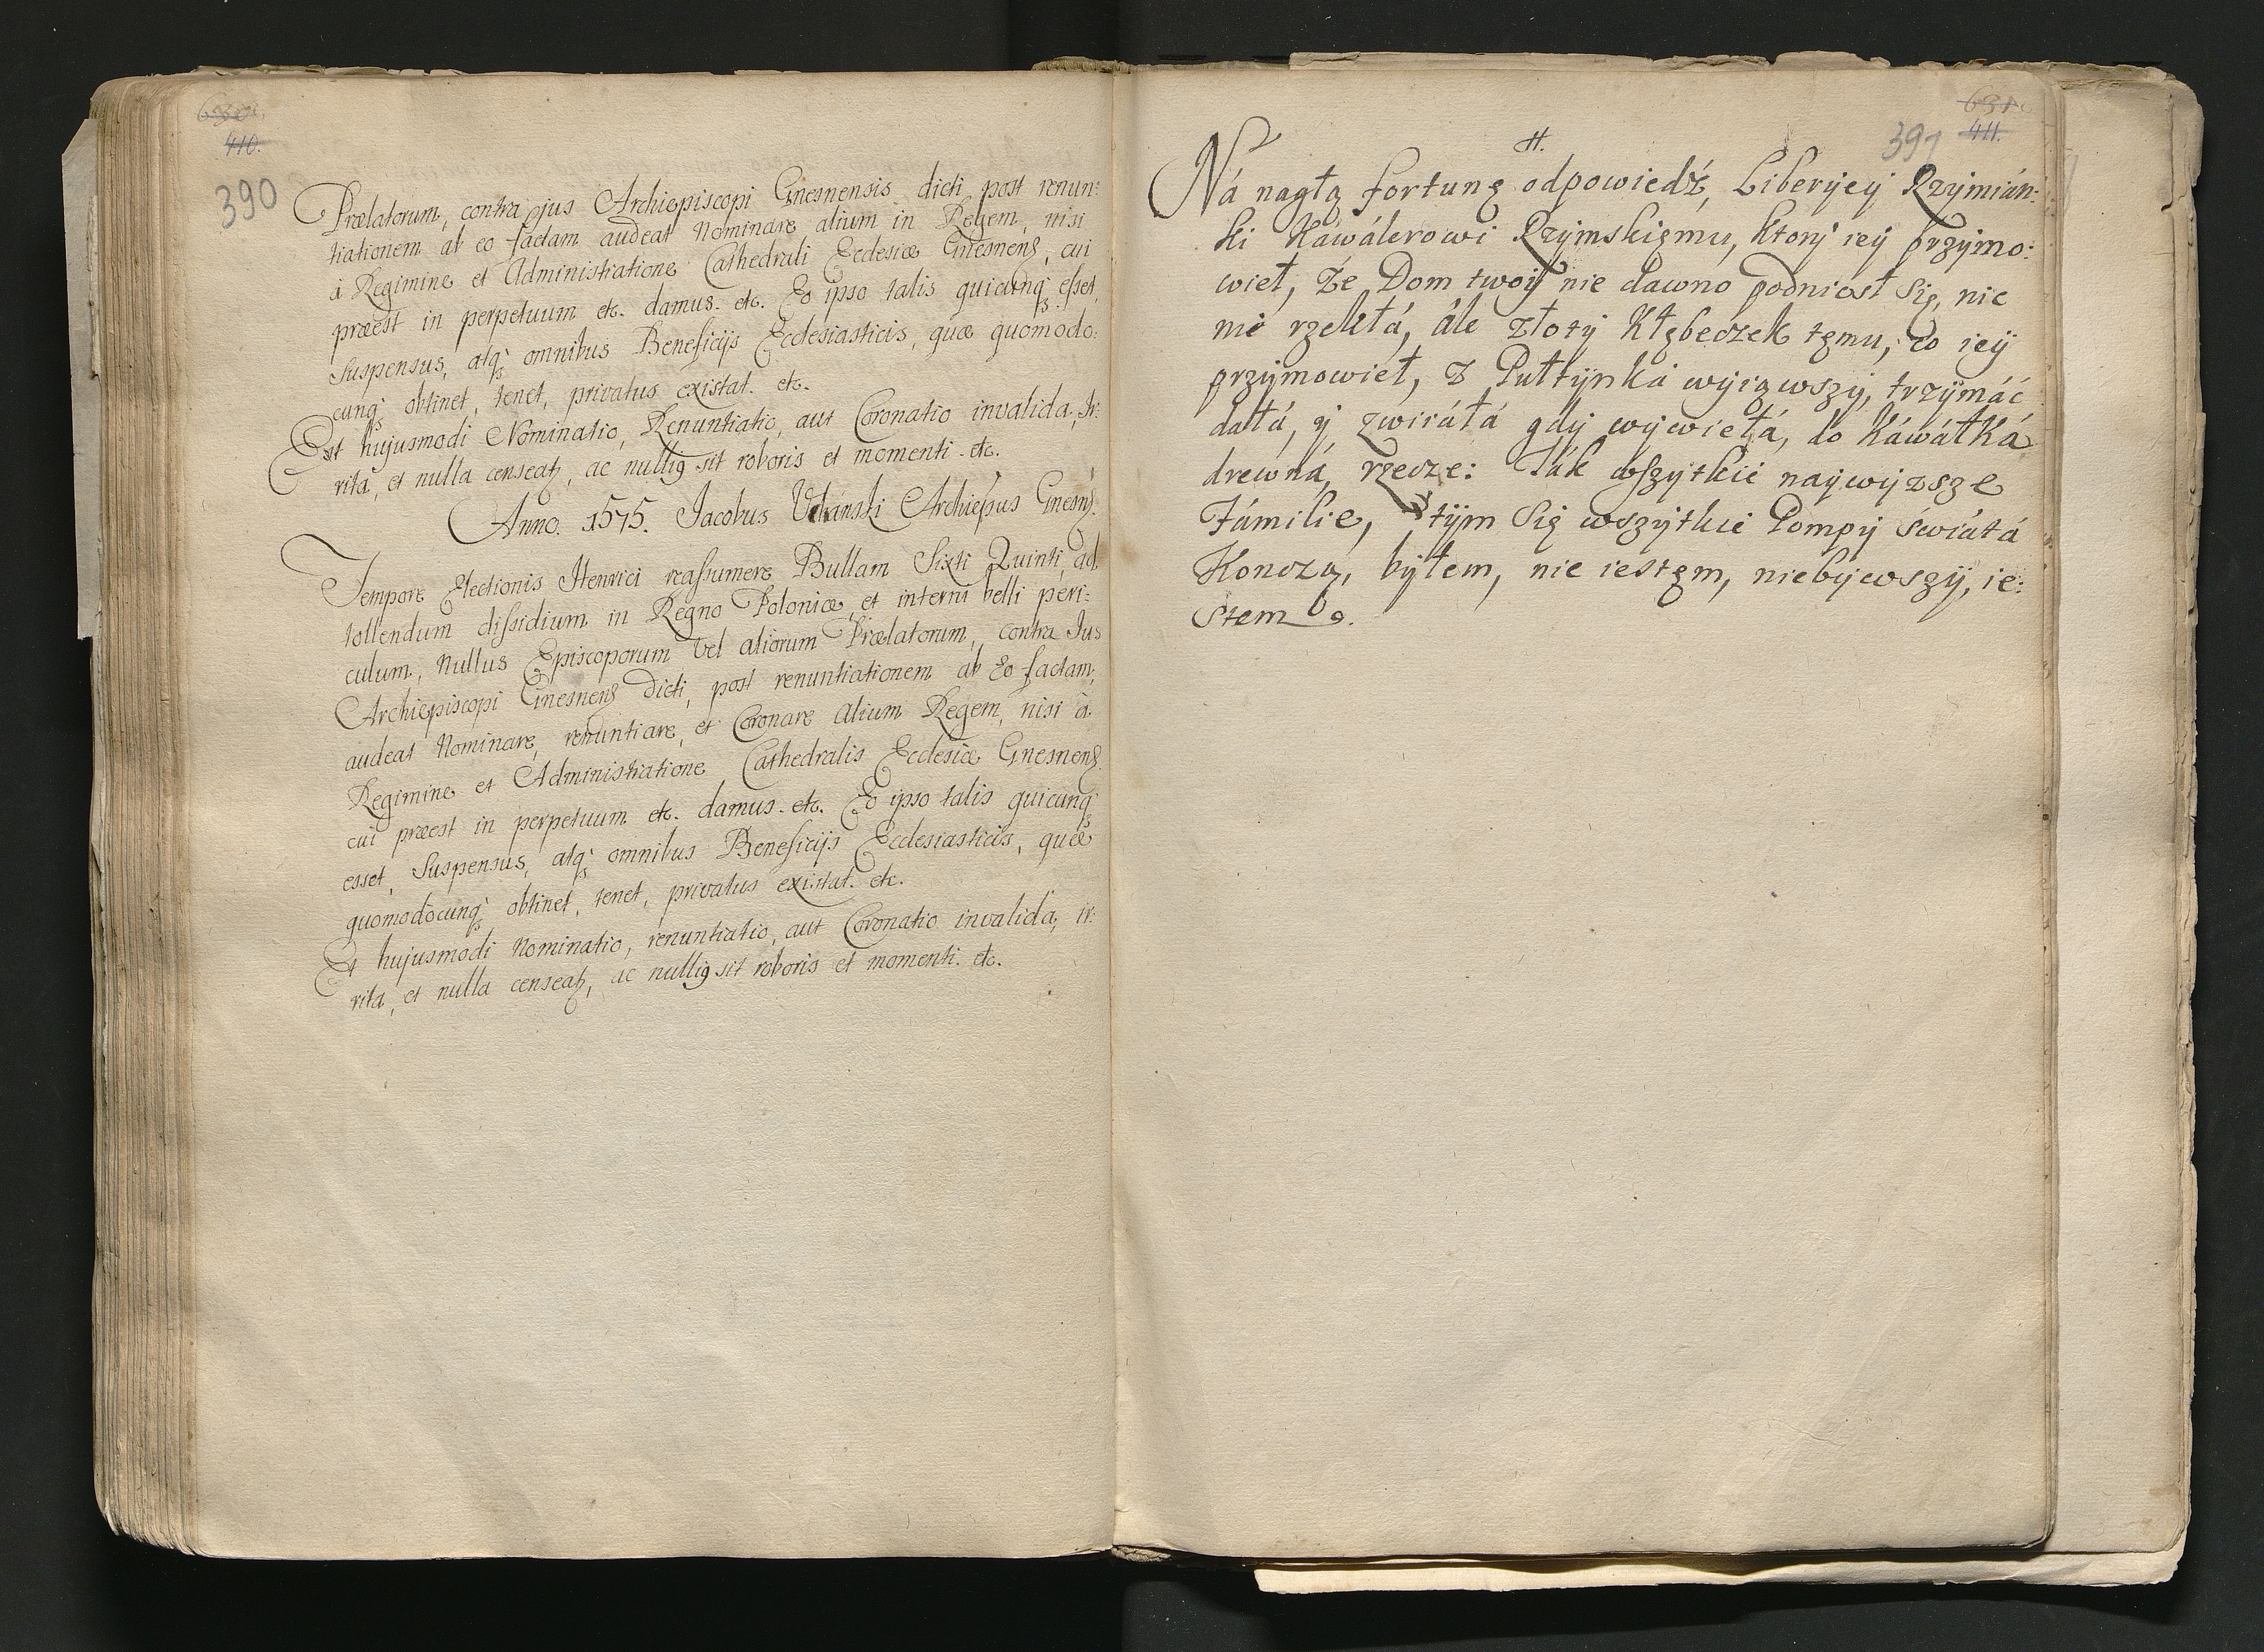 630.
410.
390
Prælatorum, contra jus Archiepiscopi Gnesnensis dicti post renun:
tiationem ab eo factam audeat Nominare alium in Regem, nisi
à Regimine et Administratione Cathedrali Ecclesiæ Gnesnens, cui
præest in perpetuum etc. damus. etc. Eo ipso talis quicunq esset,
Suspensus, atq omnibus Beneficijs Ecclesiasticis, quæ quomodo:
cunq obtinet, tenet, privatus existat. etc.
Est hujusmodi Nominatio, Renuntiatio, aut Coronatio invalida, Ir:
rita, et nulla censeatz, ac nullig sit roboris et momenti. etc.
Anno. 1575. Jacobus Uchánski Archiepus Gnesns.
Tempore Electionis Henrici reassumere Bullam Sixti Quinti, ad
tollendum dissidium in Regno Poloniæ, et interni belli peri:
culum, Nullus Episcoporum vel aliorum Prælatorum, contra Jus
Archiepiscopi Gnesnens dicti, post renuntiationem ab Eo factam,
audeat Nominare, renuntiare, et Coronare alium Regem, nisi à
Regimine et Administratione Cathedralis Ecclesiæ Gnesnens
cui præest in perpetuum etc. damus. etc. Eo ipso talis quicunq
esset, Suspensus, atq omnibus Beneficijs Ecclesiasticis, quæ
quomodocunq obtinet, tenet, privatus existat. etc.
Et hujusmodi Nominatio, renuntiatio, aut Coronatio invalida, ir:
rita, et nulla censeatz, ac nullig sit roboris et momenti. etc.
631.
411.
391
Ná nagłą fortunę odpowiedź, Liberyey Rzymián:
ki Káwálerowi Rzymskięmu, ktory iey przymo:
wieł, że Dom twoy nie dawno podniost się, nic
nie rzekłá, ále złoty Kłębeczek tęmu, co iey
przymowieł, z Pułtynká wyiąwszy, trzymáć
dałá, y zwiiáłá gdy wywiełá, do Káwáłká
drewná, rzecze: Ták wszytkie naywyzsze
Fámilie, tym się wszytkie Pompy światá
Konczą, byłem, nie iestęm, niebywszy, ie:
stem